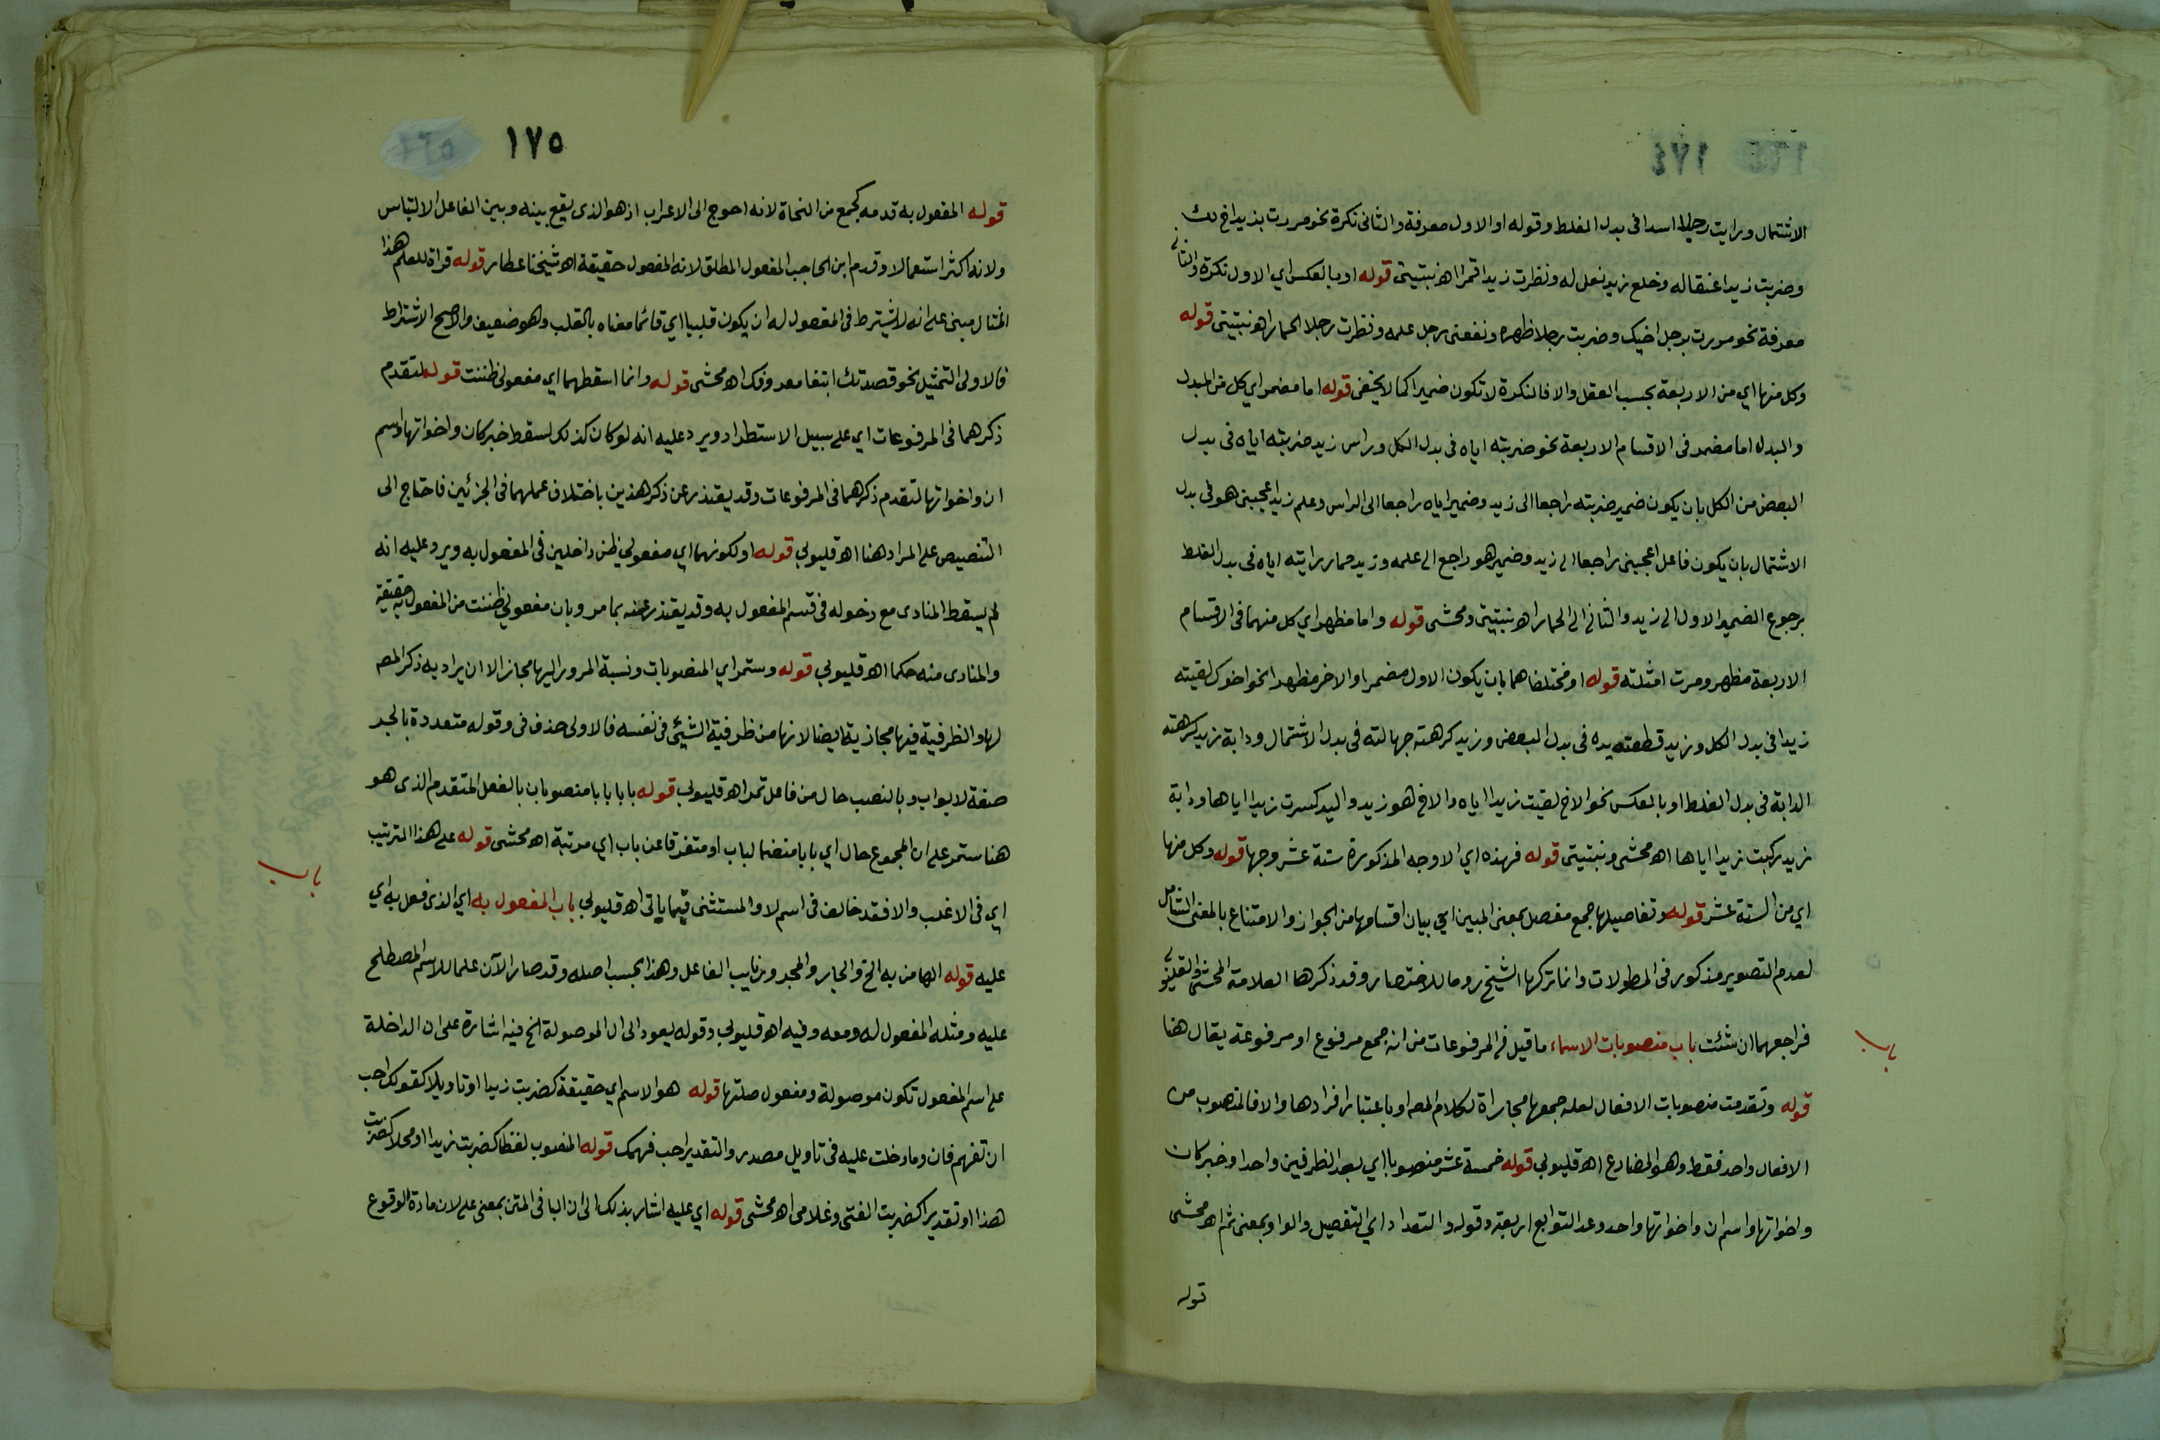 الاشتمال ورايت رجلا اسدا في بدل الغلط وقوله او الاول معرفة والثاني نكرة نحو مررت بزيد اخ لك
وضربت زيدا عنقا له وخلع زيد نعل له ونظرت زيدا قمرا اهـ نبتيتي قوله او بالعكس اي الاول نكرة والثاني
معرفة نحو مررت برجل اخيك وضربت رجلا ظهره ونفعني رجل علمه ونظرت رجلا الحمار اهـ نبتيتي قوله
وكل منها اي من الاربعة بحسب العقل والا فالنكرة لا تكون ضميرا كما لا يخفى قوله اما مضمر اي كل من المبدل
والبدل اما مضمر في الاقسام الاربعة نحو ضربته اياه في بدل الكل وراس زيد ضربته اياه في بدل
البعض من الكل بان يكون ضمير ضربته راجعا الى زيد وضمير اياه راجعا الى الراس وعلم زيد اعجبني هو في بدل
الاشتمال بان يكون فاعل اعجبني راجعا الى زيد وضمير هو راجع الى علمه وزيد حمار رايته اياه في بدل الغلط
برجوع الضمير الاول الى زيد والثاني الى الحمار اهـ نبتيتي ومحشى قوله واما مظهر اي كل منهما في الاقسام
الاربعة مظهر ومرت امثلته قوله او مختلفا هما بان يكون الاول مضمرا والاخر مظهرا نحو اخوك لقيته
زيدا في بدل الكل وزيد قطعته يده في بدل البعض وزيد كرهته جهالته في بدل الاشتمال ودابة زيد كرهته
الدابة في بدل الغلط او بالعكس نحو الاخ لقيت زيدا اياه والاخ هو زيد واليد كسرت زيدا اياها ودابة
زيد ركبت زيدا اياها اهـ محشى ونبتيتي قوله فهذه اي الاوجه المذكورة ستة عشر وجها قوله وكل منها
اي من الستة عشر قوله وتفاصيلها جمع مفصل بمعنى المبين اي بيان اقسامها من الجواز والامتناع بالمعنى الشامل
لعدم التصوير مذكور في المطولات وانما تركها الشيخ روما للاختصار وقد ذكرها العلامة المحشى والقليوبي
فراجعهما ان شئت باب منصوبات الاسماء ما قيل في المرفوعات من انه جمع مرفوع او مرفوعة يقال هنا
باب
قوله وتقدمت منصوبات الافعال لعله جمعها مجاراة لكلام المص او باعتبار افرادها والا فالمنصوب من
الافعال واحد فقط وهو المضارع اهـ قليوبي قوله خمسة عشر منصوبا اي بعد الظرفين واحدا وخبر كان
واخواتها واسم ان واخواتها واحد وعد التوابع اربعة وقوله والتعداد اي التفصيل والواو بمعنى ثم اهـ محشى
قوله
١٧٥
قوله المفعول به قدمه كجمع من النحاة لانه احوج الى الاعراب اذ هو الذي يقع بينه وبين الفاعل الالتباس
ولانه اكثر استعمالا وقدم ابن الحاجب المفعول المطلق لانه المفعول حقيقة اهـ شيخنا عطار قوله قراة للعلم هذا
المثال مبني على انه لا يشترط في المفعول له ان يكون قلبيا اي قائما معناه بالقلب وهو ضعيف والاصح الاشتراط
فالاولى التمثيل نحو قصدتك ابتغا معروفك اهـ محشى قوله وانما اسقطهما اي مفعولي ظننت قوله لتقدم
ذكرهما في المرفوعات اي على سبيل الاستطراد ويرد عليه انه لو كان كذلك لسقط خبر كان واخواتها واسم
ان واخواتها لتقدم ذكرهما في المرفوعات وقد يعتذر عن ذكر هذين باختلاف عملهما في الجزئين فاحتاج الى
التنصيص على المراد هنا اهـ قليوبي قوله او لكونهما اي مفعولي ظن داخلين في المفعول به ويرد عليه انه
لم يسقط المنادى مع دخوله في قسم المفعول به وقد يعتذر عنه بما مر وبان مفعولي ظننت من المفعول به حقيقة
والمنادى منه حكما اهـ قليوبي قوله وستمر اي المنصوبات ونسبة المرور اليها مجاز الا ان يراد به ذكر المص
لها والظرفية فيها مجازية ايضا لانها من ظرفية الشيئ في نفسه فالاولى حذف في وقوله متعددة بالجر
صفة لابواب وبالنصب حال من فاعل تمر اهـ قليوبي قوله بابا بابا منصوبان بالفعل المتقدم الذي هو
هنا ستمر على ان المجموع حال اي بابا منضما لباب او متفرقا عن باب اي مرتبة اهـ محشى قوله على هذا الترتيب
اي في الاغلب والا فقد خالف في اسم لا والمستثنى فيما ياتي اهـ قليوبي باب المفعول به اي الذي فعل به اي
باب
عليه قوله الها من به الخ والجار والمجرور نايب الفاعل وهذا بحسب اصله وقد صار الآن علما للاسم المصطلح
عليه ومثله المفعول له ومعه وفيه اهـ قليوبي وقوله يعود الى ال الموصولة الخ فيه اشارة على ان الداخلة
على اسم المفعول تكون موصولة ومفعول صلتها قوله هو الاسم اي حقيقة كضربت زيدا او تاويلا كقولك احب
ان تفهم فان وما دخلت عليه في تاويل مصدر والتقدير احب فهمك قوله المنصوب لفظا كضربت زيدا او محلا كضربت
هذا او تقديرا كضربت الفتى وغلامي اهـ محشى قوله اي عليه اشار بذلك الى ان البا في المتن بمعنى على لان مادة الوقوع